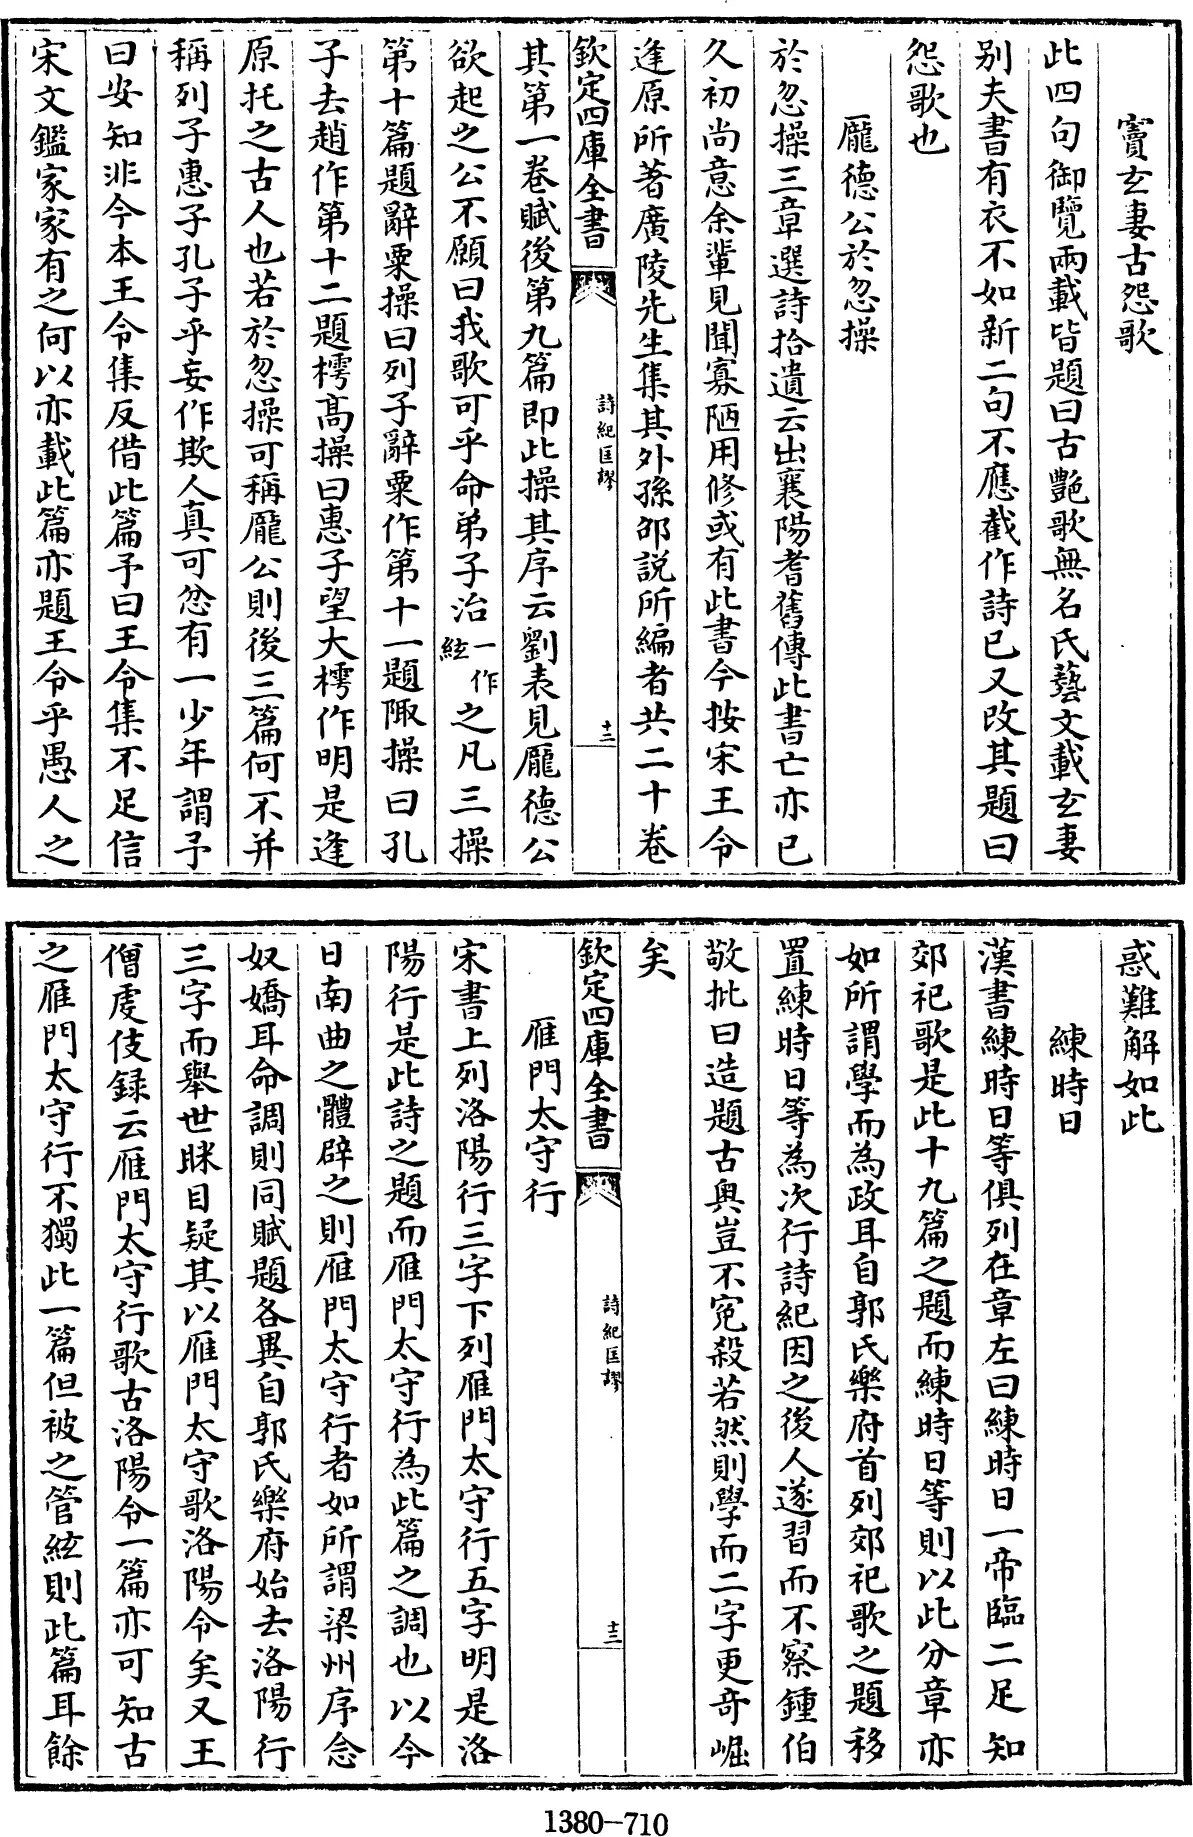 竇玄妻古怨歌
此四句御覽兩載皆題曰古艷歌無名氏藝文載玄妻
别夫書有衣不如新二句不應截作詩已又改其題曰
怨歌也
龐德公於忽操
於忽操三章選詩拾遺云出襄陽耆舊傳此書亡亦已
久初尚意余輩見聞寡陋用修或有此書今按宋王令
逢原所著廣陵先生集其外孫邵説所編者共二十卷
欽定四庫全書
詩紀匡謬
十二
其第一卷賦後第九篇即此操其序云劉表見龐德公
欲起之公不願曰我歌可乎命弟子治一作絃之凡三操
第十篇題辭粟操曰列子辭粟作第十一題陬操曰孔
子去趙作第十二題樗高操曰惠子望大樗作明是逢
原托之古人也若於忽操可稱龐公則後三篇何不并
稱列子惠子孔子乎妄作欺人真可忿有一少年謂予
曰安知非今本王令集反借此篇予曰王令集不足信
宋文鑑家家有之何以亦載此篇亦題王令乎愚人之
惑難解如此
練時日
漢書練時日等俱列在章左曰練時日一帝臨二足知
郊祀歌是此十九篇之題而練時日等則以此分章亦
如所謂學而為政耳自郭氏樂府首列郊祀歌之題移
置練時日等為次行詩紀因之後人遂習而不察鍾伯
敬批曰造題古奧豈不寃殺若然則學而二字更奇崛
矣
欽定四庫全書
詩紀匡謬
十三
雁門太守行
宋書上列洛陽行三字下列雁門太守行五字明是洛
陽行是此詩之題而雁門太守行為此篇之調也以今
日南曲之體辟之則雁門太守行者如所謂梁州序念
奴嬌耳命調則同賦題各異自郭氏樂府始去洛陽行
三字而舉世眯目疑其以雁門太守歌洛陽令矣又王
僧虔伎録云雁門太守行歌古洛陽令一篇亦可知古
之雁門太守行不獨此一篇但被之管絃則此篇耳餘
1380-710